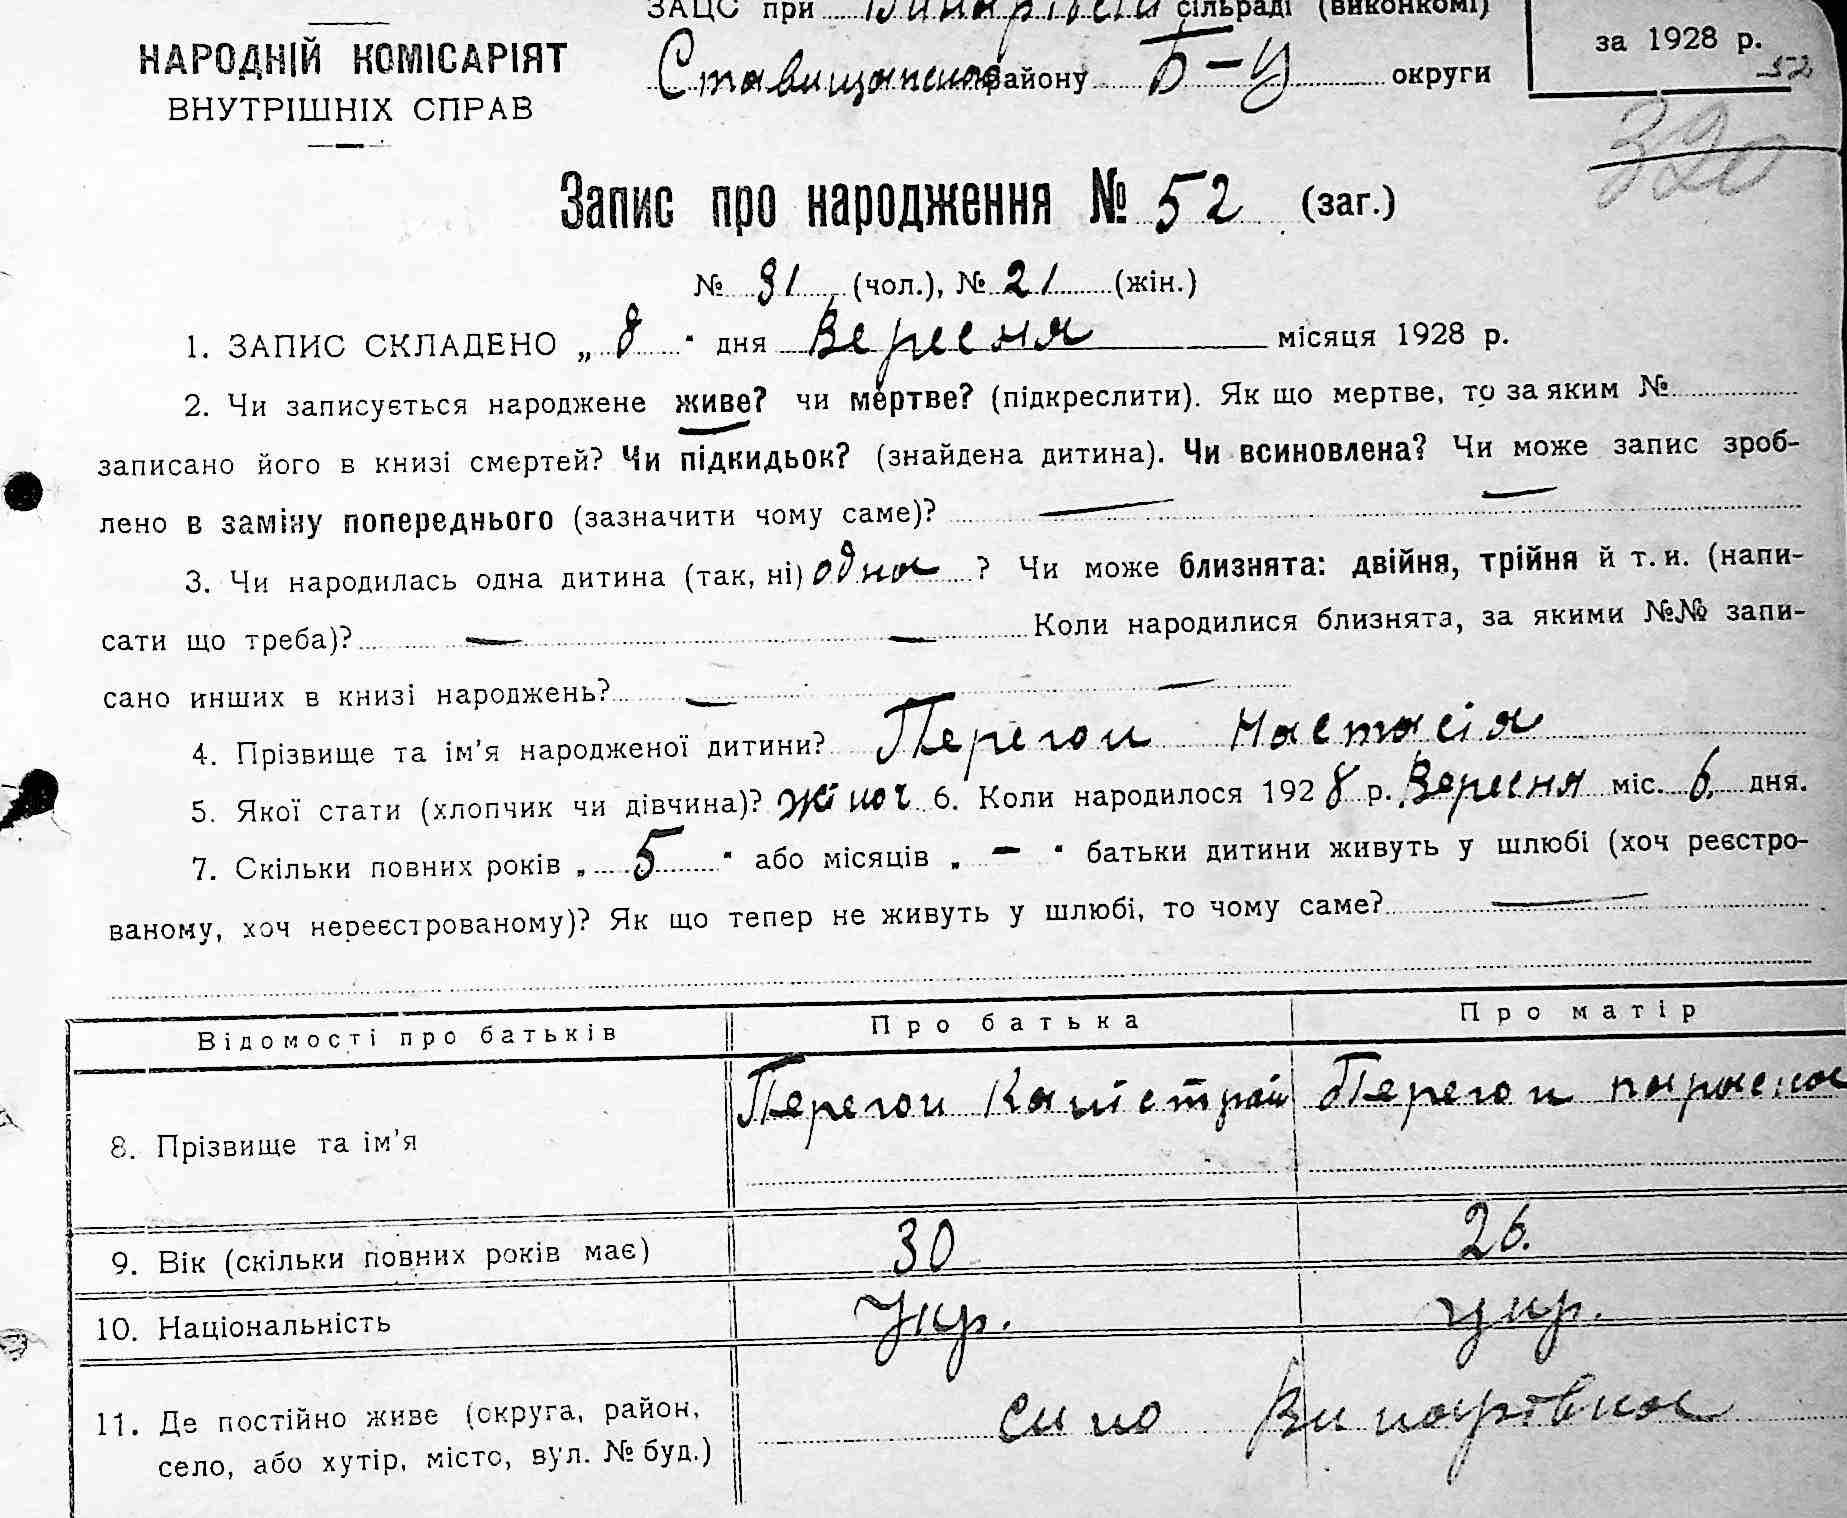 ЗАЦС при Винарівській сільраді (виконкомі)
НАРОДНІЙ КОМІСАРІЯТ
ВНУТРІШНІХ СПРАВ
Ставищанського району Б-Ц округи
за 1928 р.
52
320
Запис про народження № 52 (заг.)
№ 31 (чол.), № 21 (жін.)
1. ЗАПИС СКЛАДЕНО „ 8 " дня Вересня місяця 1928 р.
2. Чи записується народжене живе? чи мертве? (підкреслити). Як що мертве, то за яким №
записано його в книзі смертей? Чи підкидьок? (знайдена дитина). Чи всиновлена? Чи може запис зроб-
лено в заміну попереднього (зазначити чому саме)? —
3. Чи народилась одна дитина (так, ні) одна ? Чи може близнята: двійня, трійня й т. и. (напи-
сати що треба)? — — Коли народилися близнята, за якими №№ запи-
сано инших в книзі народжень? — —
4. Прізвище та ім'я народженої дитини? Перегон Настасія
5. Якої стати (хлопчик чи дівчина)? жіноч 6. Коли народилось 1928 р. Вересня міс. 6. дня.
7. Скільки повних років „ 5 " або місяців „ — " батьки дитини живуть у шлюбі (хоч реєстро-
ваному, хоч нереєстрованому)? Як що тепер не живуть у шлюбі, то чому саме? —
Відомості про батьків Про батька Про матір
8. Прізвище та ім'я Перегон Перегон
9. Вік (скільки повних років має) 30 26.
10. Національність Укр. укр.
11. Де постійно живе (округа, район,
село, або хутір, місто, вул. № буд.) Винарівка